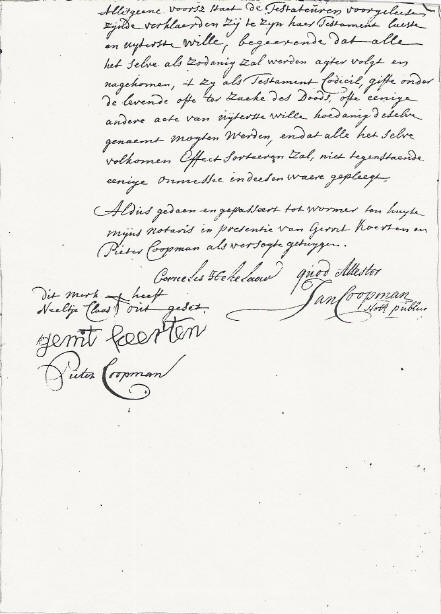 Allegeene voorsz staet de Testateüren voorgeleesen
zijnde verklaerden zij te zyn haer Testament laeste
en uyterste wille, begeerende dat alle
het selve als zodanig zal werden agter volgt en
nagekomen, 't zy als Testament Codicil, gifte onder
de levende ofte ter Zaeke des Doods, ofte eenige
andere acte van uijterste wille hoedanig deselve
genaemt mogten werden, en dat alle het selve
volkomen Effect Sorteeren zal, niet tegenstaende
eenige ommissie in deesen waere gepleegt
Aldus gedaen en gepasseert tot wormer ten huyse
mijns notaris in presentie van Gerrit Keerten en
Pieter Coopman als versogte getuygen.
Cornelis quod Attestor
dit merk heeft Jan Coopman
Neeltje Claas geset. Nots publicus
gerrit keerten
Pieter Coopman